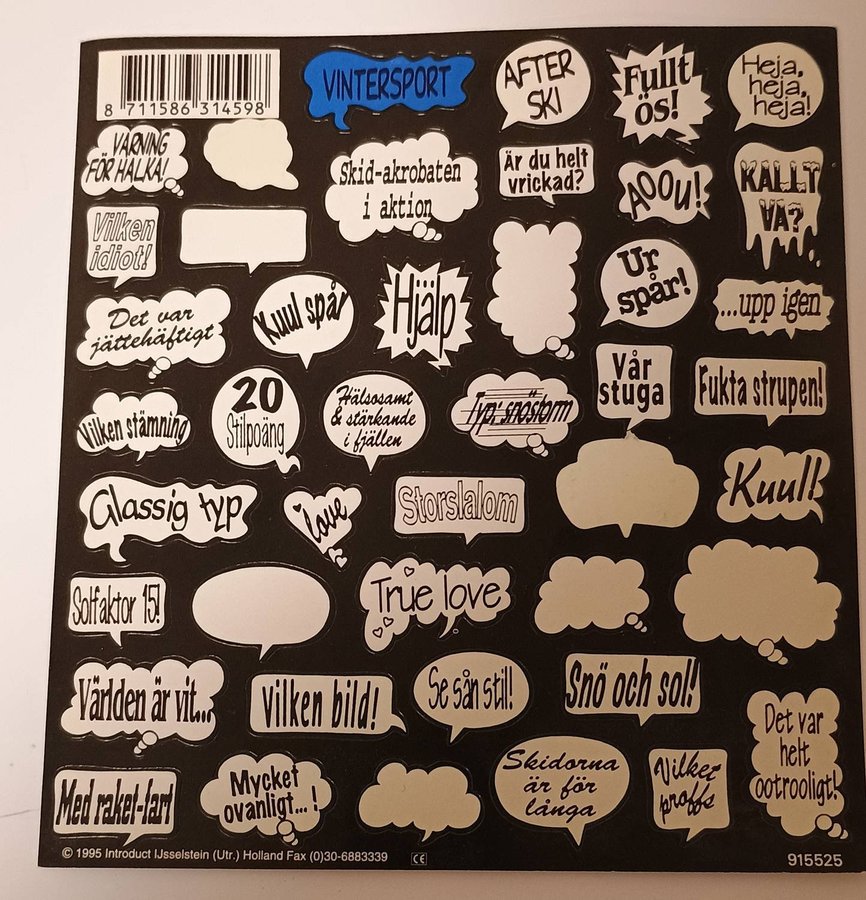 8 711586 314598
VINTERSPORT
AFTER
SKI
Fullt
ös!
Heja,
heja,
heja!
VARNING
FÖR HALKA!
Skid-akrobaten
i aktion
Är du helt
vrickad?
AOOU!
KALLT
VA?
Vilken
idiot!
Det var
jättehäftigt
Kuul spår
Hjälp
Ur
spår!
...upp igen
Vilken stämning
20
Stilpoäng
Hälsosamt
& stärkande
i fjällen
Typ: snöstorm
Vår
stuga
Fukta strupen!
Glassig typ
love
Storslalom
Kuul!
Solfaktor 15!
True love
Världen är vit...
Vilken bild!
Se sån stil!
Snö och sol!
Det var
helt
ootrooligt!
Med raket-fart
Mycket
ovanligt...!
Skidorna
är för
långa
Vilket
proffs
© 1995 Introduct IJsselstein (Utr.) Holland Fax (0)30-6883339 CE
915525